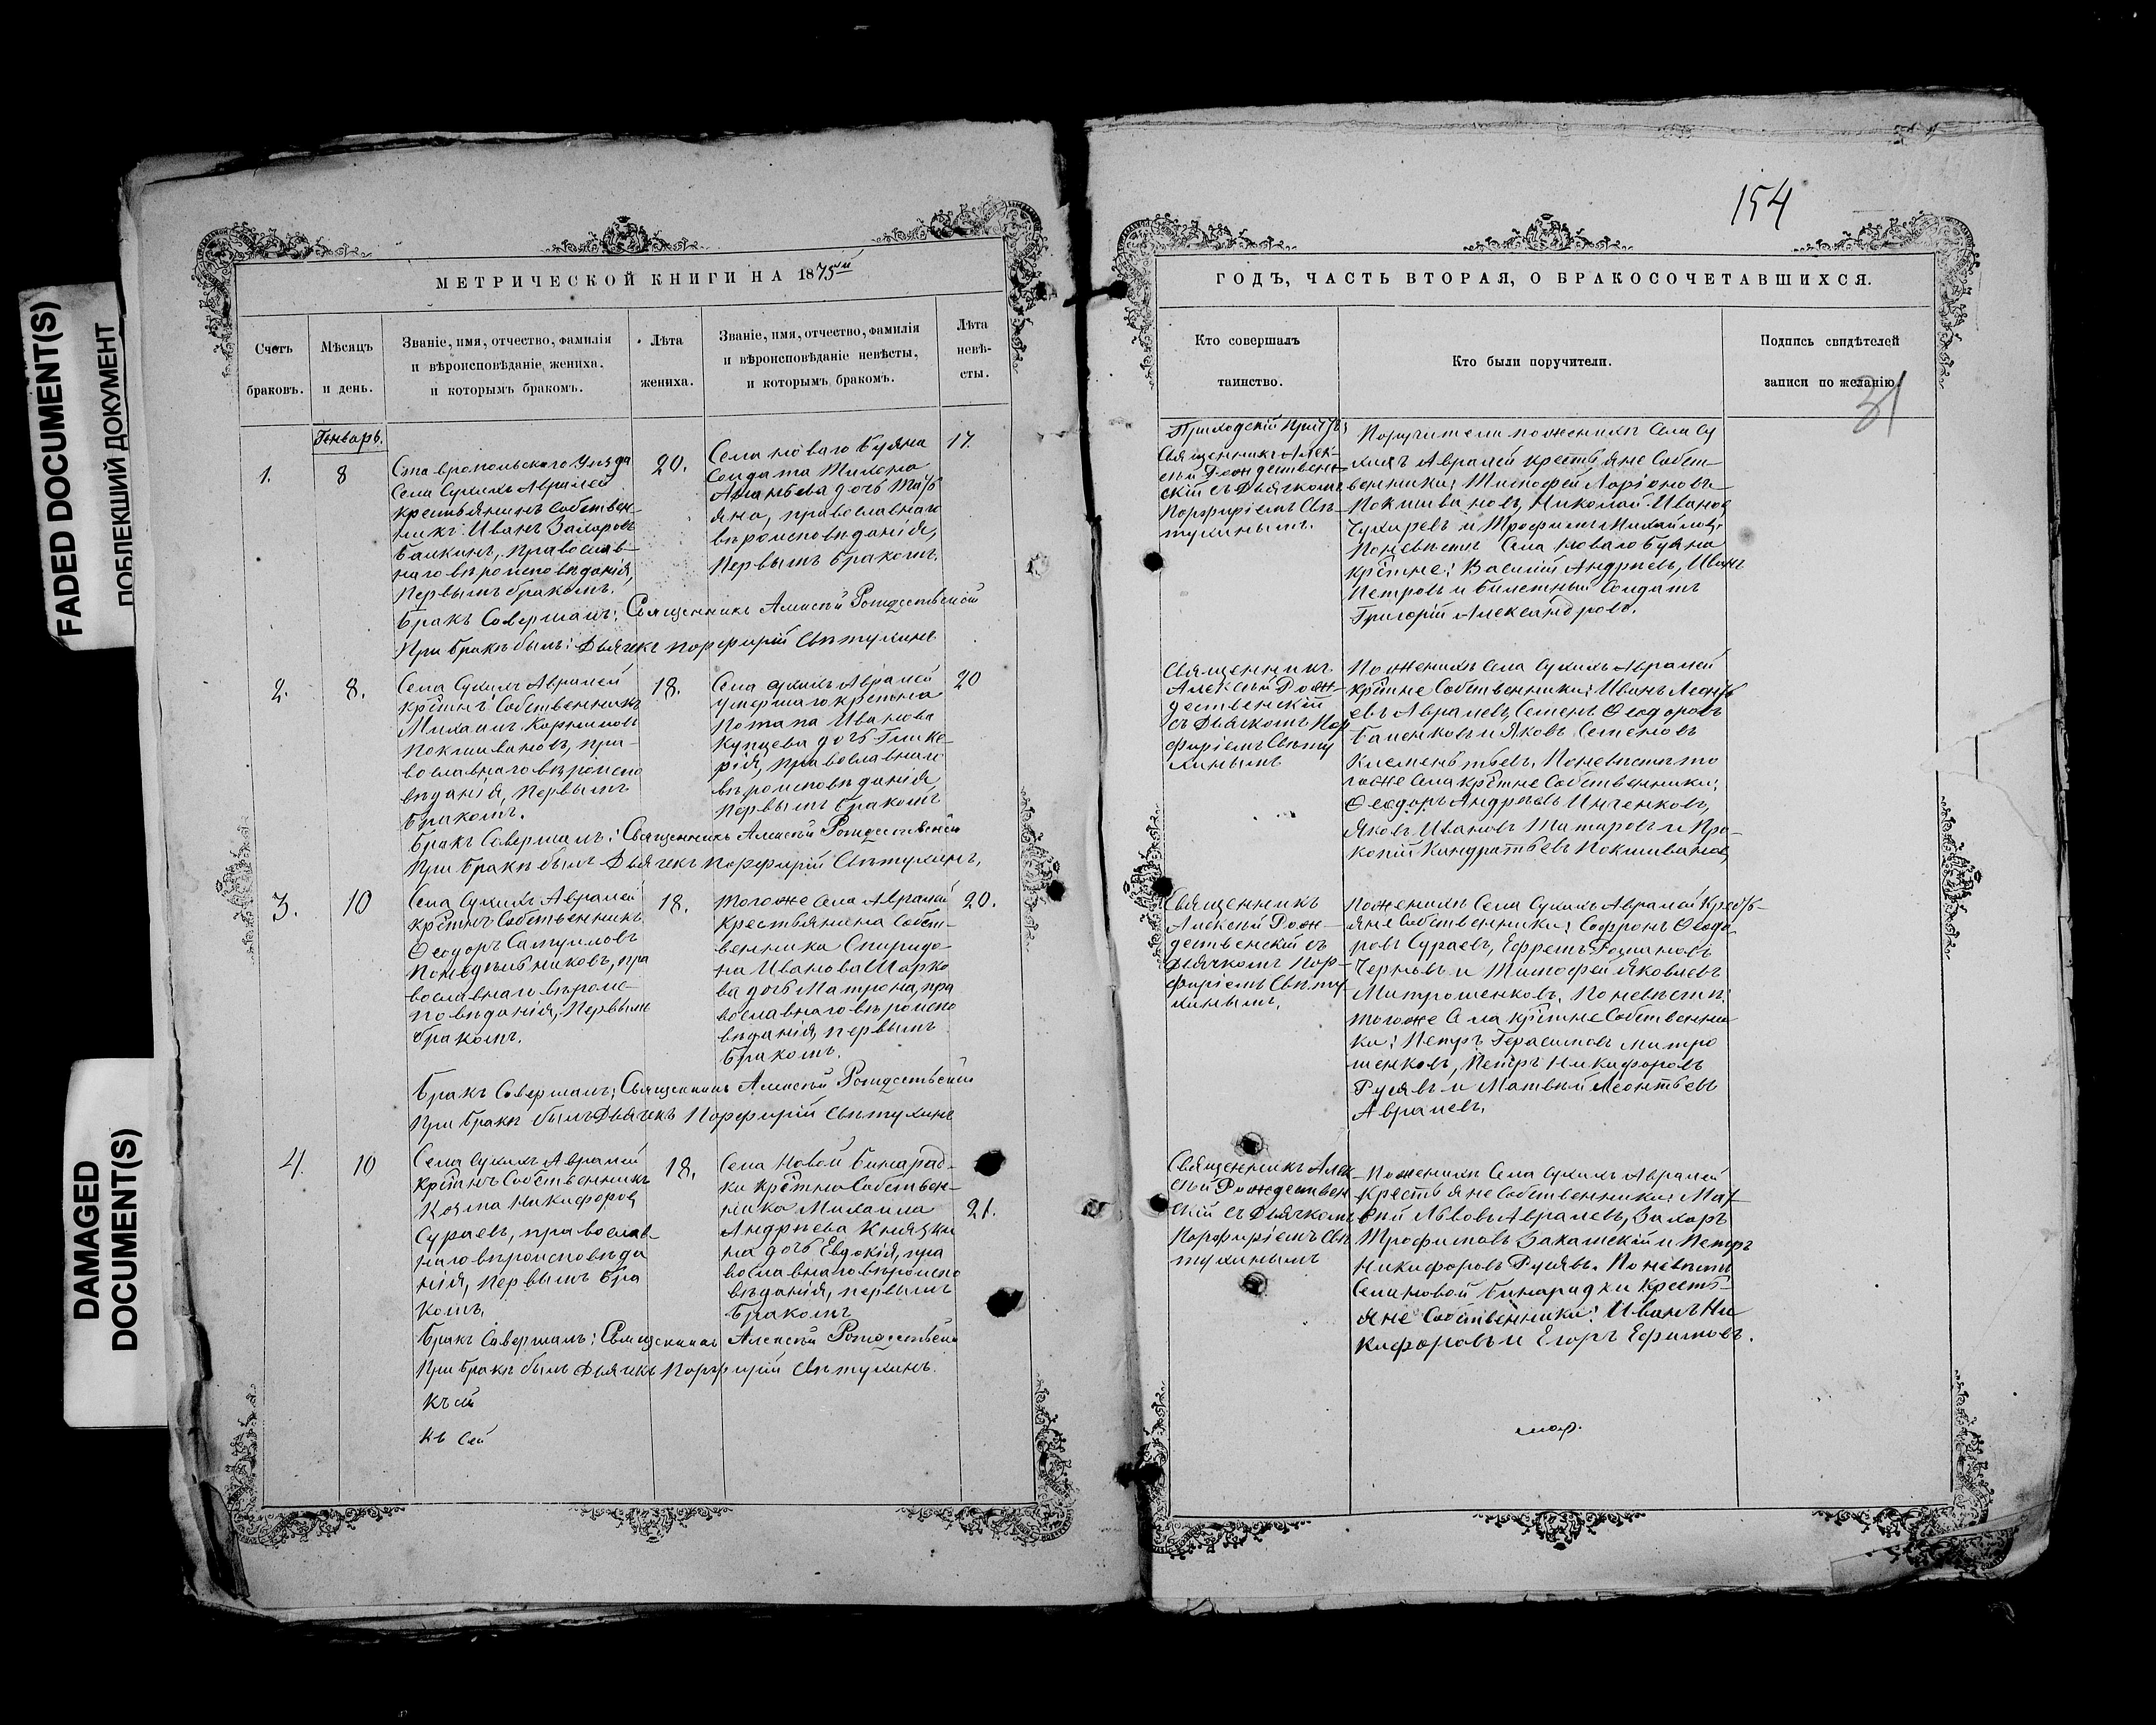 FADED DOCUMENT(S)
ПОБЛЕКШИЙ ДОКУМЕНТ
DAMAGED
DOCUMENT(S)
МЕТРИЧЕСКОЙ КНИГИ НА 1875й
Счетъ браковъ.
Мѣсяцъ и день.
Званіе, имя, отчество, фамилія
и вѣроисповѣданіе жениха,
и которымъ бракомъ.
Лѣта жениха.
Званіе, имя, отчество, фамилія
и вѣроисповѣданіе невѣсты,
и которымъ бракомъ.
Лѣта
невѣ-
сты.
Генварь.
1.
8
Ставропольскаго Уѣзда
Села Сухихъ Авралей
крестьянинъ собствен-
никъ Иванъ Захаровъ
Балкинъ, православ-
наго вѣроисповѣданія,
первымъ бракомъ.
20.
Села новаго Буяна
Солдата Тихона
Ананьева дочь Тать
яна, православнаго
вѣроисповѣданія,
первымъ бракомъ.
17.
Бракъ Совершалъ: Священникъ Алексѣй Рождественскій
При бракѣ былъ: Дьячекъ Порфирій Свѣтухинъ
2.
8.
Села Сухихъ Авралей
крѣтнъ Собственникъ
Михаилъ Корниловъ
Покшивановъ, пра-
вославнаго вѣроиспо
вѣданія, первымъ
бракомъ.
18.
Села Сухихъ Авралей
умершаго крѣтнна
Потапа Иванова
Купцева дочь Глике-
рія, православнаго
вѣроисповѣданія
первымъ бракомъ
20
Бракъ Совершалъ: Священникъ Алексѣй Рождественскій
При бракѣ былъ Дьячекъ Порфирій Свѣтухинъ,
3.
10
Села Сухихъ Авралей
крѣтнъ Собственникъ
Ѳеодоръ Самуиловъ
Понедѣльниковъ, пра
вославнаго вѣроис-
повѣданія, первымъ
бракомъ.
18.
Тогоже Села Авралей
крестьянина Собст-
венника Спиридо-
на Иванова Марко
ва дочь Матрона, пра
вославнаго вѣроиспо
вѣданія, первымъ
бракомъ.
20.
Бракъ Совершалъ: Священникъ Алексѣй Рождественскій
При бракѣ былъ Дьячекъ Порфирій Свѣтухинъ
4.
10
Села Сухихъ Авралей
крѣтнъ Собственникъ
Козма Никифоровъ
Сураевъ, православ-
наго вѣроисповѣда
нія, первымъ бра
комъ.
18.
Села Новой Бинарад-
ки крѣтнна Собствен-
ника Михаила
Андрѣева Княжки
на дочь Евдокія, пра
вославнаго вѣроиспо
вѣданія, первымъ
бракомъ
21.
Бракъ Совершалъ: Священникъ Алексѣй Рождественскій
При бракѣ былъ Дьячекъ Порфирій Свѣтухинъ.
къ сей
къ сей
154
ГОДЪ, ЧАСТЬ ВТОРАЯ, О БРАКОСОЧЕТАВШИХСЯ.
Кто совершалъ
таинство.
Кто были поручители.
Подпись свидѣтелей
записи по желанію.
31
Приходскій причтъ:
Священникъ Алек-
сѣй Рождествен-
скій съ Дьячкомъ
Порфиріемъ Свѣ-
тухинымъ.
Поручители по женихѣ Села Су
хихъ Авралей крестьяне Собст-
венники: Тимофей Ларіоновъ
Покшивановъ, Николай Ивановъ
Чухаревъ и Трофимъ Михайловъ.
По невѣстѣ Села новаго Буяна
крѣтне: Василій Андрѣевъ, Иванъ
Петровъ и билетный Солдатъ
Григорій Александровъ.
Священникъ
Алексѣй Рож-
дественскій
съ Дьячкомъ Пор
фиріемъ Свѣту
хинымъ
По женихѣ Села Сухихъ Авралей
крѣтне Собственники: Иванъ Леонть
евъ Авралевъ, Семенъ Ѳеодоровъ
Баленковъ и Яковъ Семеновъ
Клементьевъ. По невѣстѣ то
гоже Села крѣтне Собственники:
Ѳеодоръ Андрѣевъ Инченковъ,
Яковъ Ивановъ Татаровъ и Про-
копій Киндратьевъ Покшивановъ
Священникъ
Алексѣй Рож-
дественскій съ
Дьячкомъ Пор-
фиріемъ Свѣту
хинымъ.
По женихѣ Села Сухихъ Авралей Кресть-
яне Собственники: Софронъ Ѳеодо
ровъ Сураевъ, Ефремъ Романовъ
Черновъ и Тимофей Яковлевъ
Митрошенковъ. По невѣстѣ:
Тогоже Села крѣтне Собственни
ки: Петръ Герасимовъ Митро
шенковъ, Петръ Никифоровъ
Русяевъ и Матвѣй Леонтьевъ
Авралевъ.
Священникъ Алек
сѣй Рождествен
скій съ Дьячкомъ
Порфиріемъ Свѣ
тухинымъ
По женихѣ Села Сухихъ Авралей
крестьяне Собственники: Мат-
вѣй Львовъ Авралевъ, Захаръ
Трофимовъ Закамскій и Петръ
Никифоровъ Русяевъ. По невѣстѣ
Села новой Бинарадки кресть-
яне Собственники: Иванъ Ни
кифоровъ и Егоръ Ефимовъ.